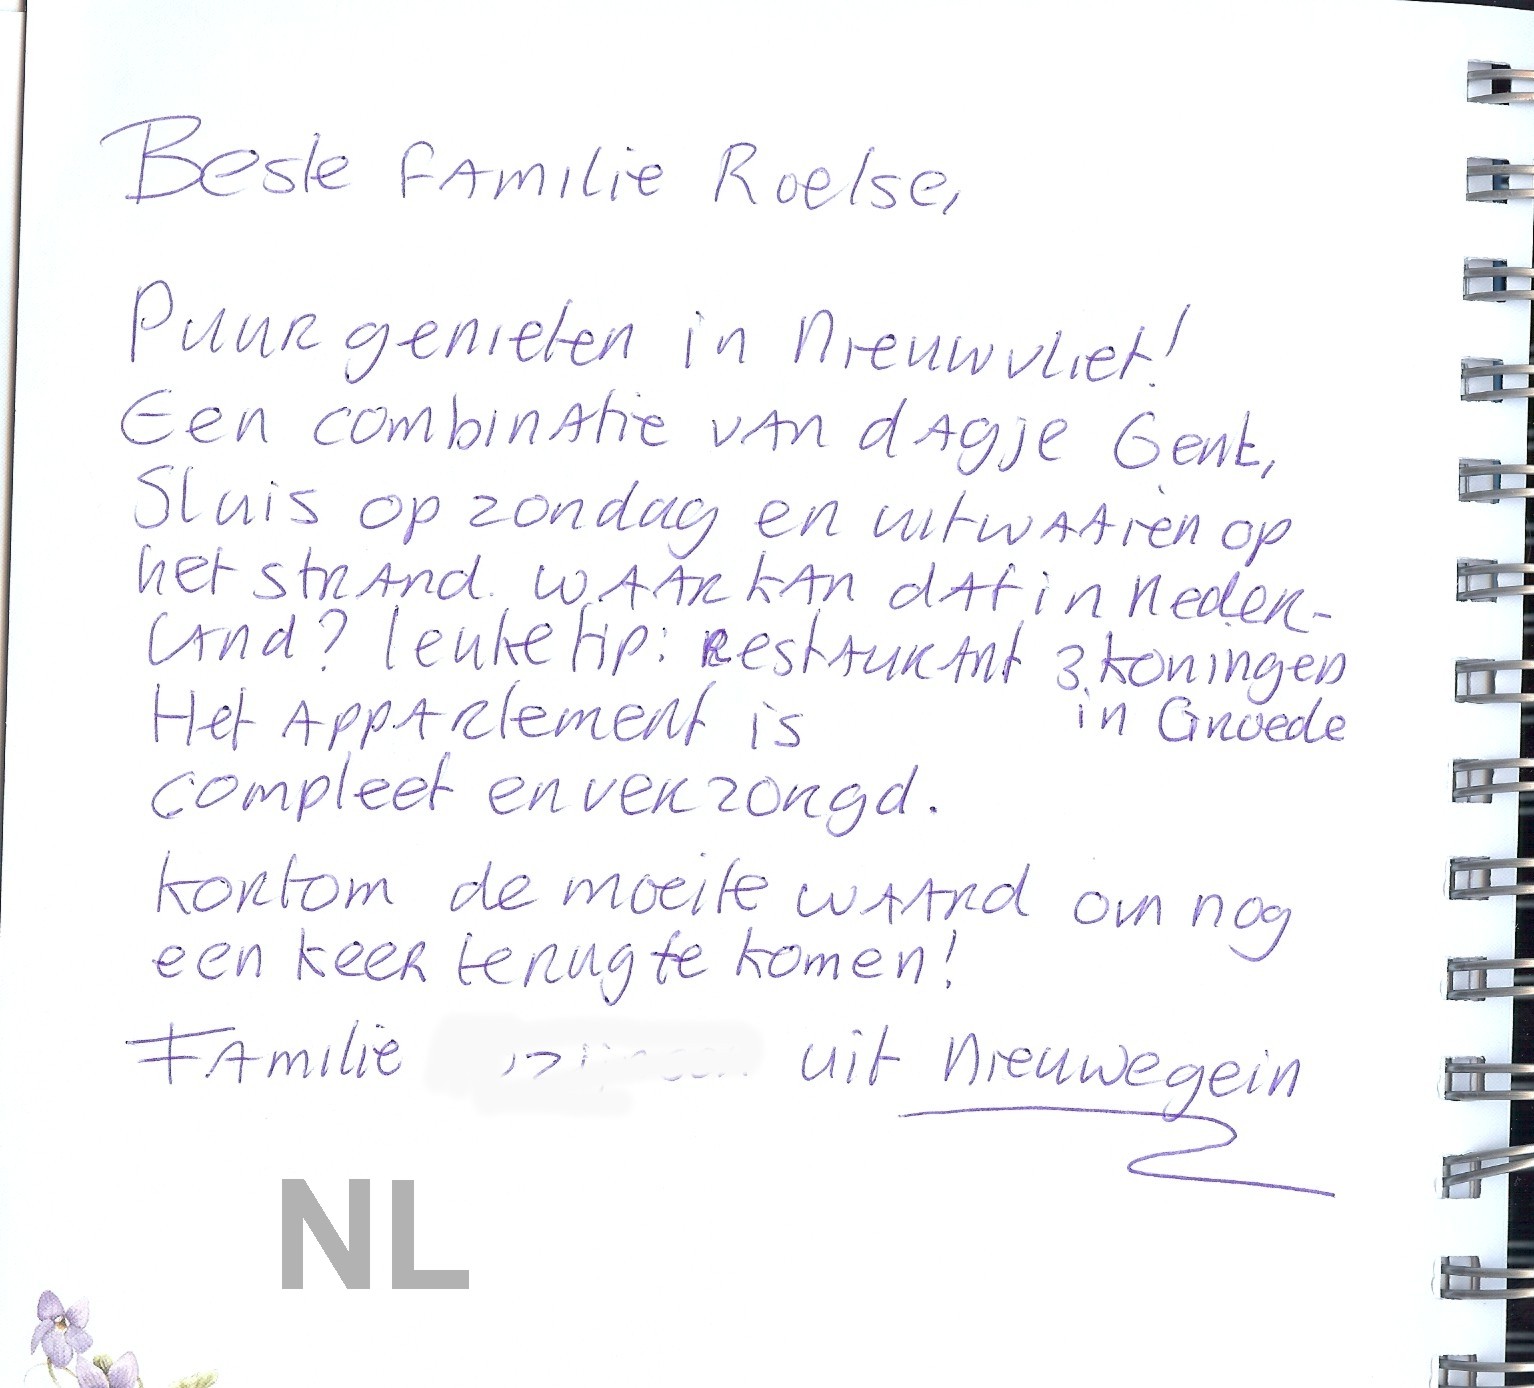 Beste Familie Roelse,
Puur genieten in Nieuwvliet!
Een combinatie van dagje Gent,
Sluis op zondag en uitwaaien op
het strand. Waar kan dat in Neder-
land? leuke tip: Restaurant 3 koningen
in Groede
Het appartement is
compleet en verzorgd.
kortom de moeite waard om nog
een keer terug te komen!
Familie uit Nieuwegein
NL